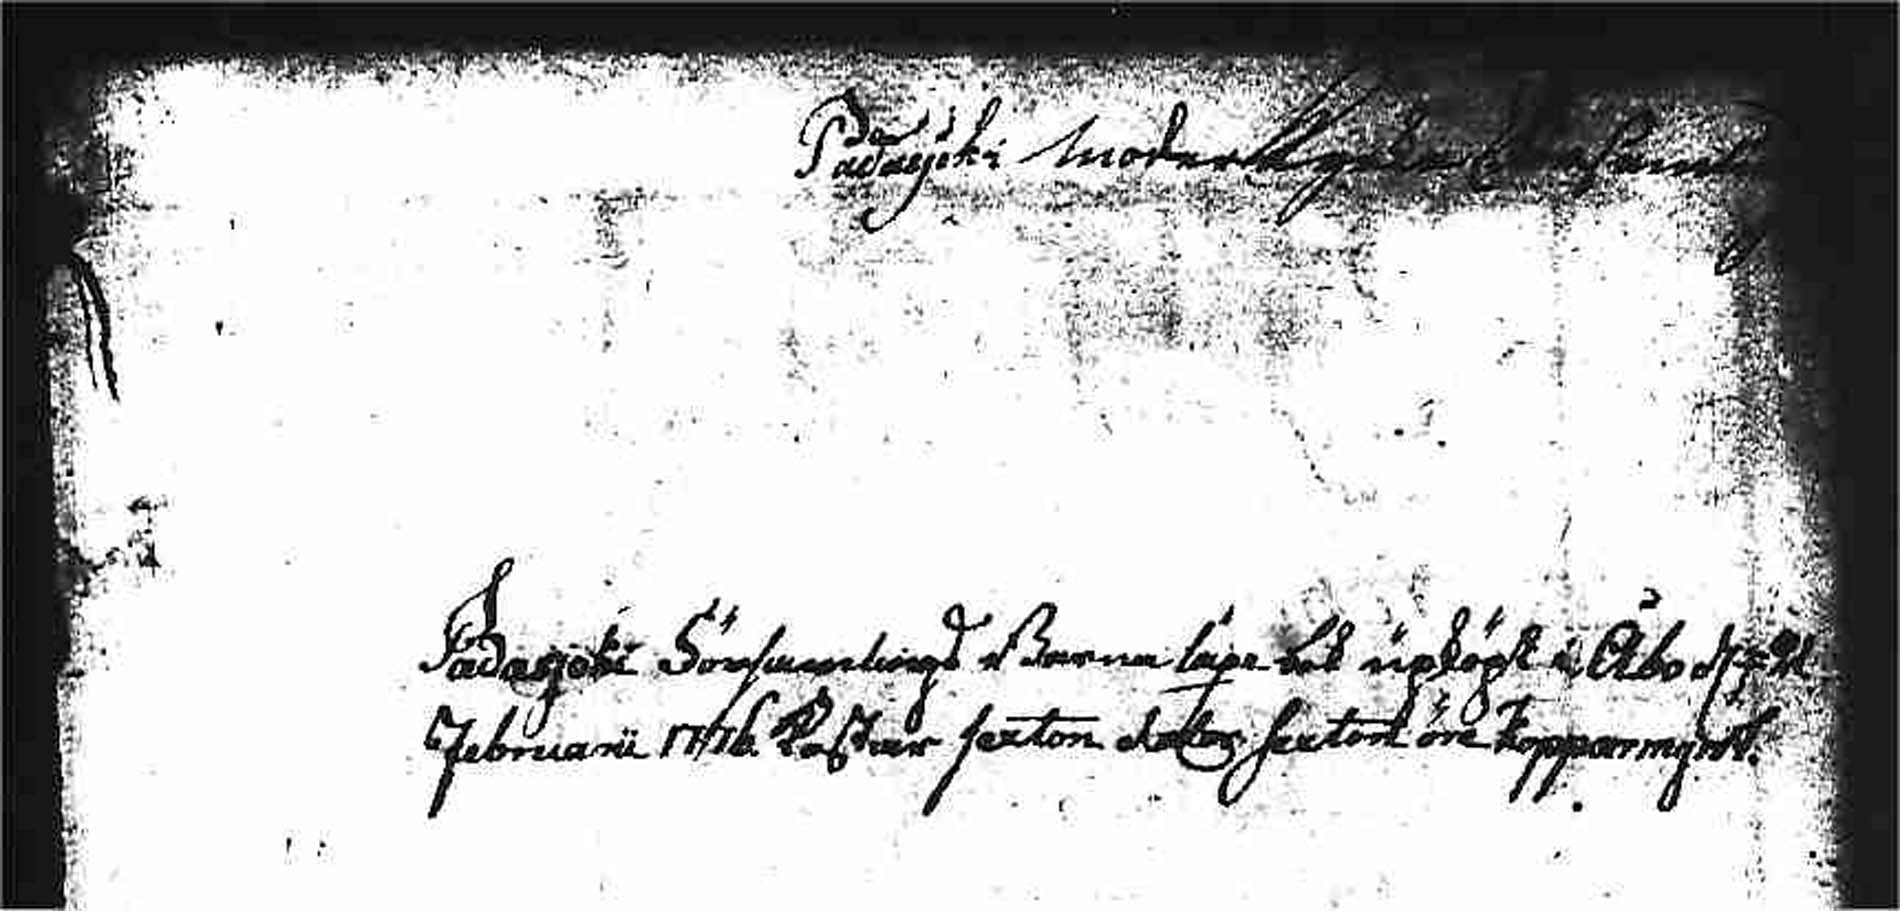 Padasjoki Moder
Padasjoki Församlings Barna läge bok upkögt i Åbo d. 22
Februarii 1776. Kostar sexton daler sexton öre Kopparmynt.